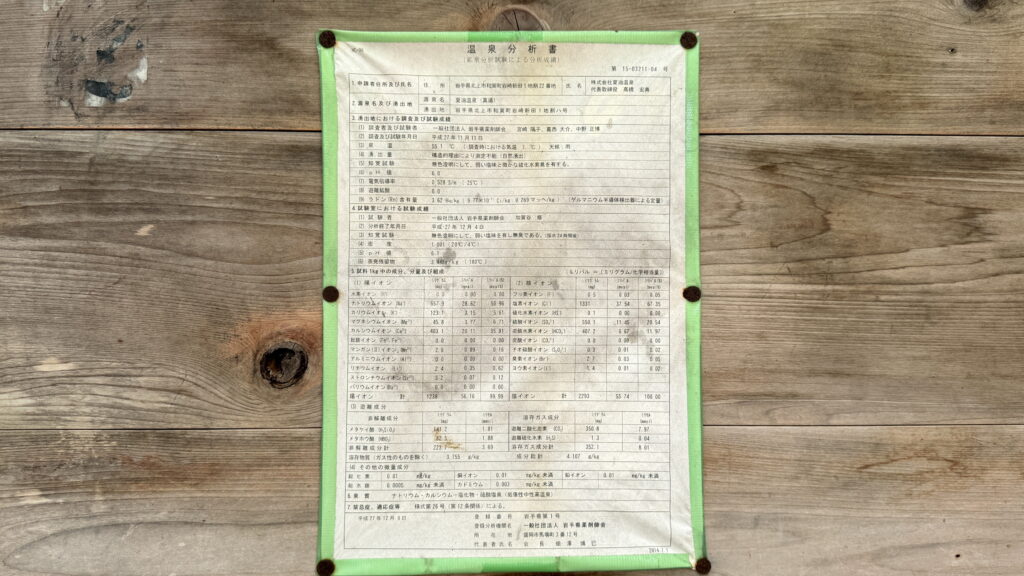 温泉分析書
(鉱泉分析試験による分析成績)
第 15-03211-04 号
1.申請者住所及び氏名 住所 岩手県北上市和賀町岩崎新田1地割22番地 氏名 株式会社夏油温泉
代表取締役 高橋
2.源泉名及び湧出地 源泉名 夏油温泉(真湯)
湧出地 岩手県北上市和賀町岩崎新田1地割八号
3.湧出地における調査及び試験成績
(1) 調査者及び試験者 一般社団法人 岩手県薬剤師会 宮崎 陽子、葛西 大介、中野 正博
(2) 調査及び試験年月日 平成27年11月11日
(3) 泉温 55.1 ℃ (調査時における気温 ℃) 天候:雨
(4) 湧出量 構造的理由により測定不能(自然湧出)
(5) 知覚試験 無色透明にして、弱い塩味と微かな硫化水素臭を有する。
(6) pH値 6.8
(7) 電気伝導率 0.528 S/m (25℃)
(8) 遊離鉱酸 0.0
(9) ラドン(Rn)含有量 3.62 Bq/kg (ゲルマニウム半導体検出器による定量)
4.試験室における試験成績
(1) 試験者 一般社団法人 岩手県薬剤師会 加賀谷
(2) 分析終了年月日 平成27年12月4日
(3) 知覚試験 無色透明にして、弱い塩味を有し無臭である。
(4) 密度 1.001 (20℃/4℃)
(5) pH値 6.7
(6) 蒸発残留物 (180℃)
5.試料1kg中の成分、分量及び組成
(1) 陽イオン (2) 陰イオン
水素イオン (H⁺) 0.0 0.00 0.00 フッ素イオン (F⁻) 0.5 0.03 0.05
ナトリウムイオン (Na⁺) 28.62 50.96 塩素イオン (Cl⁻) 1331 37.54 67.35
カリウムイオン (K⁺) 123.1 3.15 5.61 硫化水素イオン (HS⁻) 0.1 0.00 0.00
マグネシウムイオン (Mg²⁺) 45.8 3.77 6.71 硫酸イオン (SO₄²⁻) 550.1 11.45 20.54
カルシウムイオン (Ca²⁺) 403.1 20.11 35.81 炭酸水素イオン (HCO₃⁻) 407.2 6.67 11.97
鉄イオン 0.0 0.00 0.00 炭酸イオン 0.0 0.00 0.00
マンガン(Ⅱ)イオン 0.09 0.16 チオ硫酸イオン 0.3 0.01 0.02
アルミニウムイオン 0.0 0.00 0.00 臭素イオン 2.7 0.03 0.05
リチウムイオン 2.4 0.35 0.62 ヨウ素イオン 1.4 0.01 0.02
ストロンチウムイオン 3.2 0.07 0.12
バリウムイオン 0.00 0.00
陽イオン計 1238 56.16 99.99 陰イオン計 2293 55.74 100.00
(3) 遊離成分
非解離成分 溶存ガス成分
メタケイ酸 1.81 遊離二酸化炭素 (CO₂) 350.8 7.97
メタホウ酸 (HBO₂) 1.88 遊離硫化水素 (H₂S) 1.3 0.04
非解離成分計 溶存ガス成分計 352.1 8.01
溶存物質 (ガス性のものを除く) 3.755 g/kg 成分総計 4.107 g/kg
(4) その他の微量成分
総ヒ素 0.01 mg/kg 銅イオン 0.01 mg/kg 未満 鉛イオン 0.01 mg/kg 未満
総水銀 0.0005 mg/kg 未満 カドミウム 0.003 mg/kg 未満
6.泉質 ナトリウム・カルシウム-塩化物・硫酸塩泉 (低張性中性高温泉)
7.禁忌症、適応症等 様式第26号 (第12条関係) による。
平成27年12月8日 登録番号 岩手県第1号
登録分析機関名 一般社団法人 岩手県薬剤師会
所在地 盛岡市馬場町3番12号
代表者氏名 会長